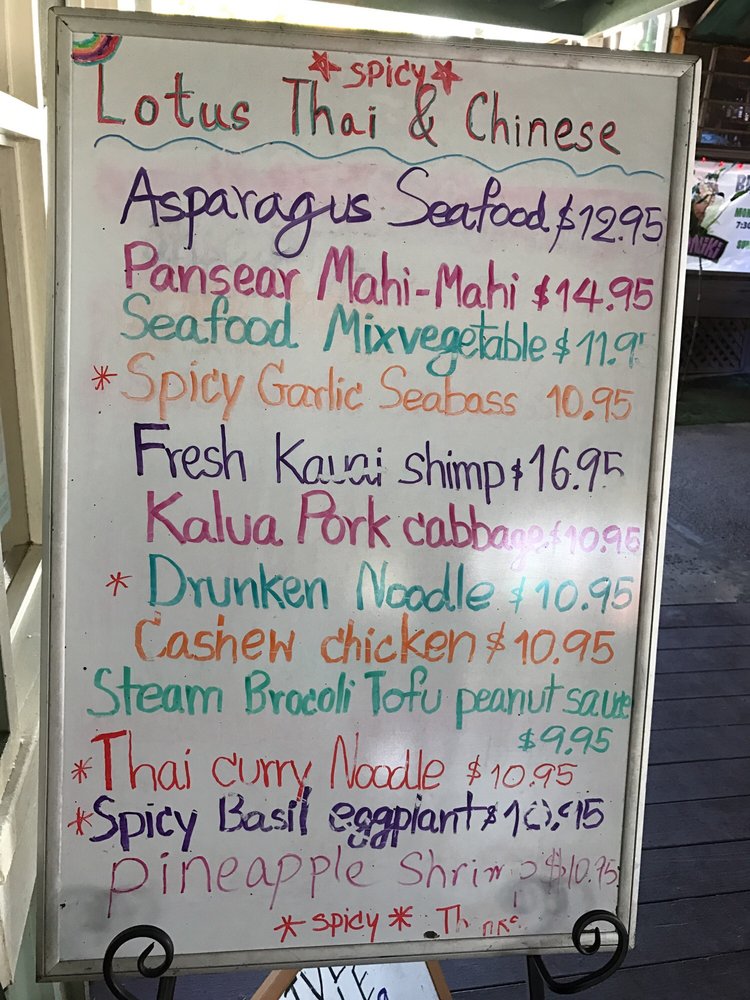 *spicy*
Lotus Thai & Chinese
Asparagus Seafood $12.95
Pansear Mahi-Mahi $14.95
Seafood Mixvegetable $11.9
*Spicy Garlic Seabass 10.95
Fresh Kauai shimp $16.95
Kalua Pork cabbage $10.95
*Drunken Noodle $10.95
Cashew chicken $10.95
Steam Brocoli Tofu peanut sauce
$9.95
*Thai curry Noodle $10.95
*Spicy Basil eggplant $10.95
pineapple Shrimp $10.95
*spicy*